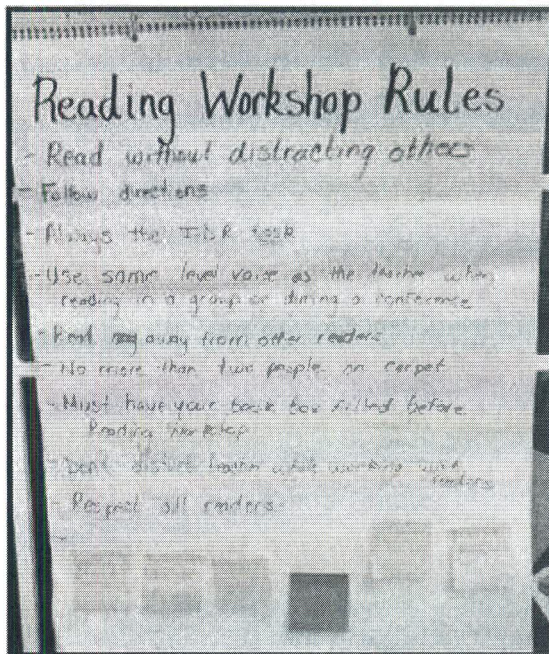 Reading Workshop Rules
- Read without distracting others
- Follow directions
- Always the task
- Use same level voice as the teacher when
reading in a group or during a conference
- Read away from other readers
- No more than two people on carpet
- Must have your book box filled before
Reading Workshop
- Don't disturb teacher while working with
readers
- Respect all readers
-